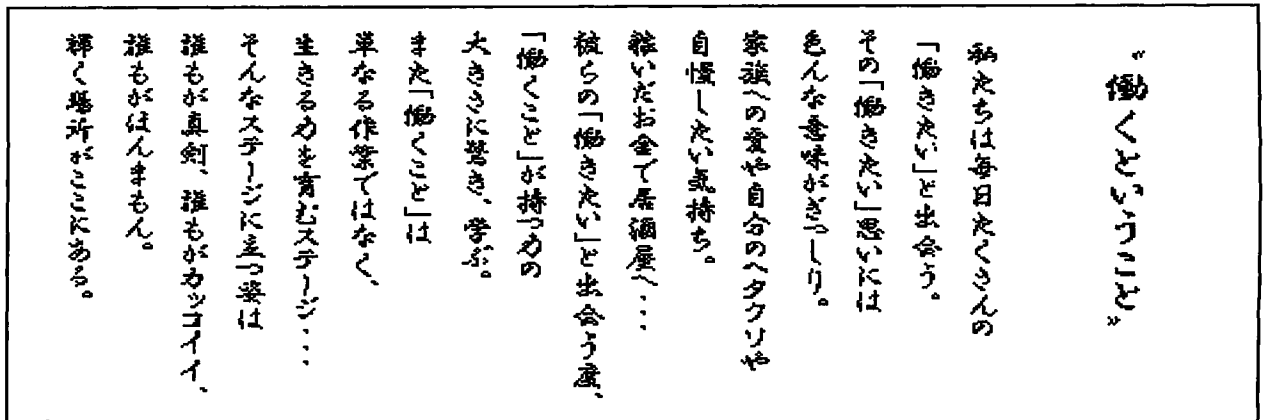 “働くということ”
私たちは毎日たくさんの
「働きたい」と出会う。
その「働きたい」思いには
色んな意味がぎっしり。
家族への愛や自分のヘタクソや
自慢したい気持ち。
稼いだお金で居酒屋へ・・・
彼らの「働きたい」と出会う度、
「働くこと」が持つ力の
大きさに驚き、学ぶ。
また「働くこと」は
単なる作業ではなく、
生きる力を育むステージ・・・
そんなステージに立つ姿は
誰もが真剣、誰もがカッコイイ、
誰もがほんまもん。
輝く場所がここにある。